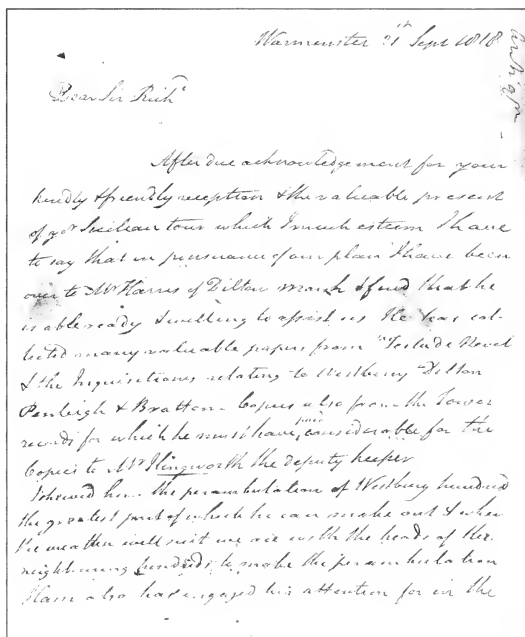 Warminster 21st Sept 1818
Dear Sir Richd
After due acknowledgement for your
kindly & friendly reception & the valuable present
of yor Sicilian tour which I much esteem I have
to say that in pursuance of our plan I have been
over to Mr Harris of Dilton Marsh & find that he
is able ready & willing to assist us He has col-
lected many valuable papers from "Testa de Nevel
& the Inquisitiones relating to Westbury Dilton
Penleigh & Bratton - Copies also from the Tower
records for which he must have paid considerable for the
Copies to Mr Illingworth the deputy keeper
I shewed him the perambulation of Westbury hundred
the greatest part of which he can make out & when
the weather will suit we are with the heads of the
neighbouring hundreds to make the perambulation
also has engaged his attention for in the